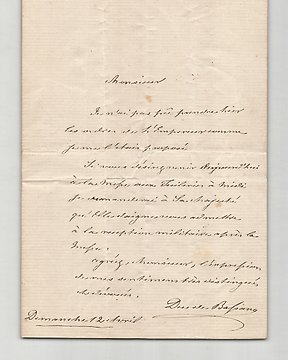 Monsieur
Je n'ai pas pu prendre hier
les ordres de l'Empereur comme
je me l'étais proposé
Si vous désirez venir aujourd'hui
à la Messe aux Tuileries à Midi
je demanderai à Sa Majesté
qu'Elle daigne vous admettre
à la réception militaire après la
Messe.
agréez, Monsieur, l'expression
de mes sentiments très distingués
et dévoués,
Duc de Bassano
Dimanche 12 Avril